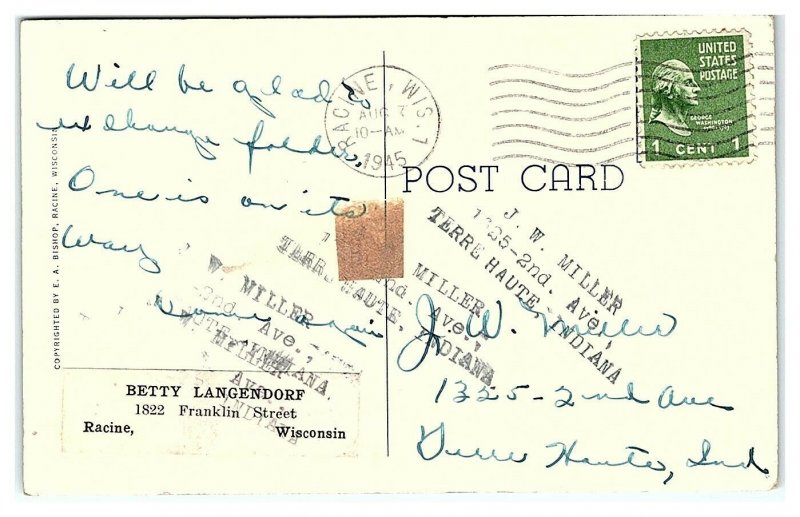 Will be glad to
exchange folder.
One is on its
way
COPYRIGHTED BY E. A. BISHOP, RACINE, WISCONSIN
BETTY LANGENDORF
1822 Franklin Street
Racine, Wisconsin
RACINE, WIS.
AUG 7
10-AM
1945
UNITED
STATES
POSTAGE
GEORGE
WASHINGTON
1 CENT 1
POST CARD
J. W. MILLER
1325-2nd. Ave.,
TERRE HAUTE, INDIANA
MILLER
2nd Ave.,
TERRE HAUTE, INDIANA
W. MILLER
2nd Ave.,
HAUTE, INDIANA.
MILLER
Ave.,
INDIANA
J. W. Miller
1325-2nd Ave
Terre Haute, Ind